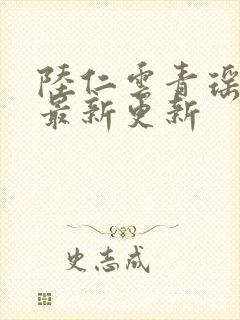 陸仁雲青瑶
最新更新
史志成